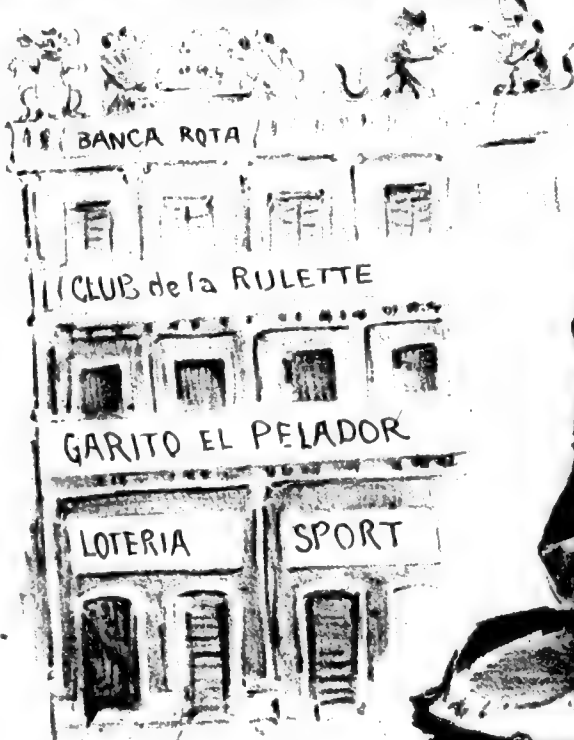 BANCA ROTA
CLUB de la RULETTE
GARITO EL PELADOR
LOTERIA
SPORT